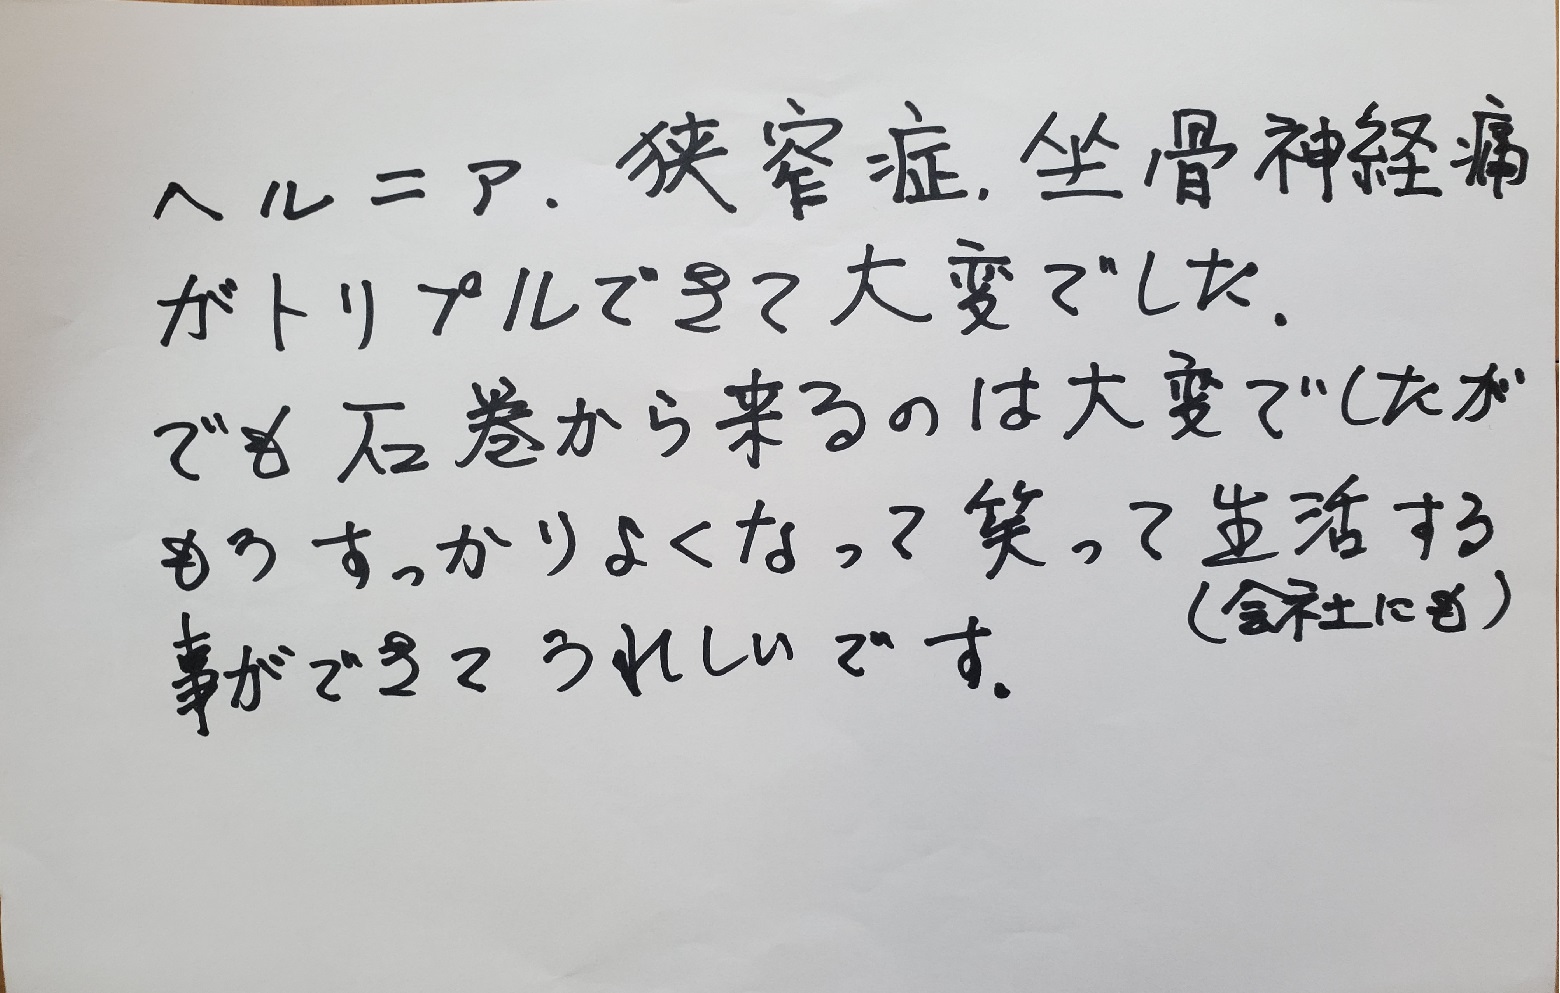 ヘルニア．狭窄症．坐骨神経痛
がトリプルできて大変でした．
でも石巻から来るのは大変でしたが
もうすっかりよくなって笑って生活する
(会社にも)
事ができてうれしいです．